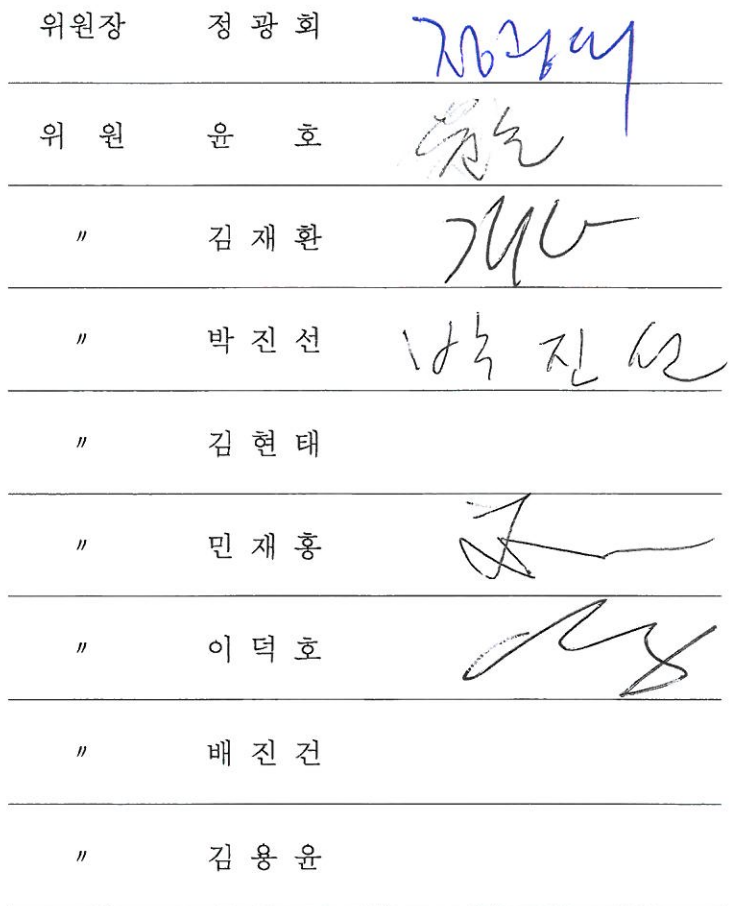 위원장 정 광 회 정광회
위 원 윤 호
〃 김 재 환
〃 박 진 선 박 진 선
〃 김 현 태
〃 민 재 홍
〃 이 덕 호
〃 배 진 건
〃 김 용 윤